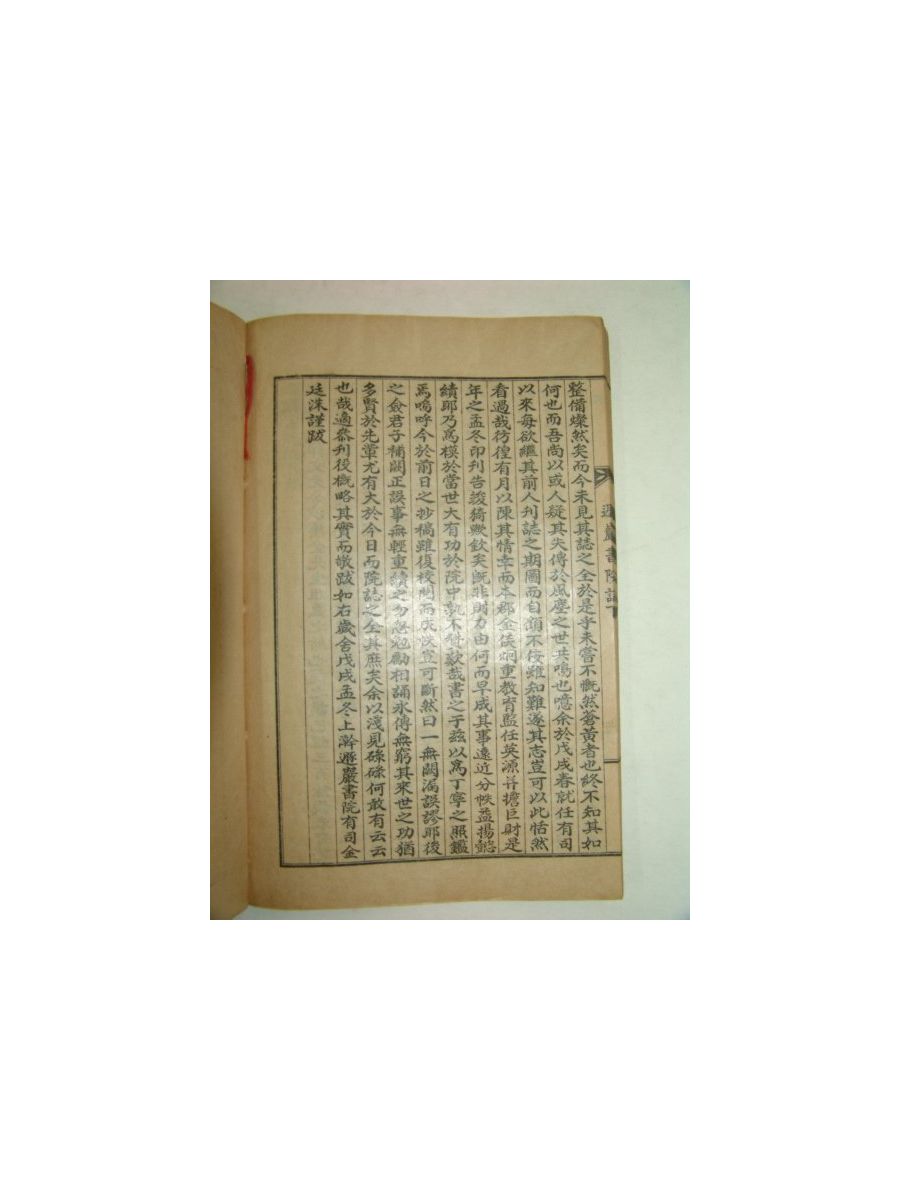 遯巖書院誌下
整備燦然矣而今未見其誌之全於是乎未嘗不慨然蒼黃者也終不知其如
何也而吾尚以或人疑其失傳於風塵之世共鳴也噫余於戊戌春就任有司
以來每欲繼其前人刊誌之期圖而自顧不佞雖知難遂其志豈可以此恬然
看過哉彷徨有月以陳其情幸而本郡金侯炯重敎育監任英源幷擔巨財是
年之孟冬印刊告竣猗歟欽矣旣非財力由何而早成其事遠近分帙益揚懿
績耶乃爲模於當世大有功於院中孰不贊歎哉書之于玆以爲丁寧之照鑑
焉嗚呼今於前日之抄稿雖復校閱而成帙豈可斷然曰一無闕漏誤謬耶後
之僉君子補闕正誤事無輕重續之勿怠勉勵相誦永傳無窮其來世之功猶
多賢於先輩尤有大於今日而院誌之全其庶矣余以淺見碌碌何敢有云云
也哉適叅刊役槪略其實而敬跋如右歲舍戊戌孟冬上澣遯巖書院有司金
廷洙謹跋